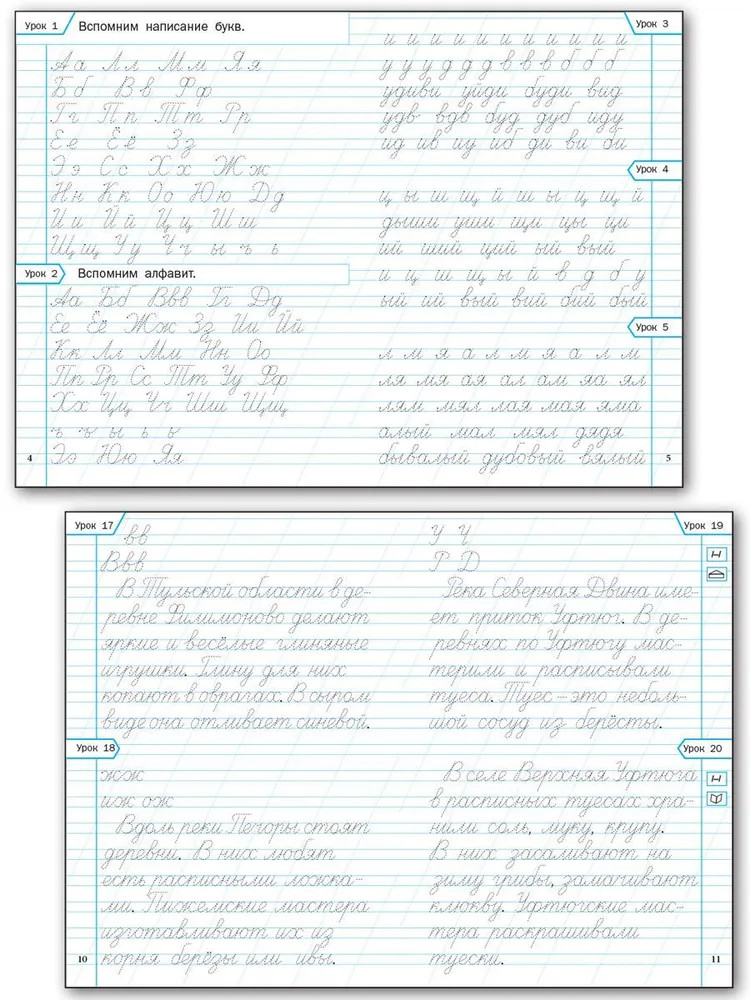 Урок 1
Вспомним написание букв.
Аа Лл Мм Яя
Бб Вв Фф
Гг Пп Тт Рр
Ее Ёё Зз
Ээ Сс Хх Жж
Нн Кк Оо Юю Дд
Ии Йй Цц Шш
Щщ Уу Чч ы ъ ь
Урок 2
Вспомним алфавит.
Аа Бб Ввв Гг Дд
Ее Ёё Жж Зз Ии Йй
Кк Лл Мм Нн Оо
Пп Рр Сс Тт Уу Фф
Хх Цц Чч Шш Щщ
ъ ъ ы ь ь
Ээ Юю Яя
4
Урок 3
и и и и и и и и и и и
у у у д д д в в в б б б
удиви уйди буди вид
удв вдв буд дуб иду
ид ив иу иб ди ви би
Урок 4
ц ы ш щ й ш ы ц щ й
дыши уши щи цы ци
ий ший щий ый вый
и ц ш щ ы й в д б у
ый ий вый вий бий бый
Урок 5
л м я а л м я а л м
ля мя ая ал ам яа ял
лям мял лая мая яма
алый мал мял дядя
бывалый дубовый вялый
5
Урок 17
вв
Ввв
В Тульской области в де-
ревне Филимоново делают
яркие и весёлые глиняные
игрушки. Глину для них
копают в оврагах. В сыром
виде она отливает синевой.
Урок 18
жж
иж ож
Вдоль реки Печоры стоят
деревни. В них любят
есть расписными ложка-
ми. Пижемские мастера
изготавливают их из
корня берёзы или ивы.
10
Урок 19
У Ч
Р D
Река Северная Двина име-
ет приток Уфтюг. В де-
ревнях по Уфтюгу мас-
терили и расписывали
туеса. Туес – это неболь-
шой сосуд из берёсты.
Урок 20
В селе Верхняя Уфтюга
в расписных туесах хра-
нили соль, муку, крупу.
В них засаливают на
зиму грибы, замачивают
клюкву. Уфтюгские мас-
тера раскрашивали
туески.
11